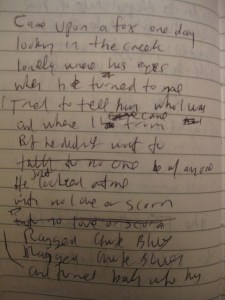 Came upon a fox one day
looking in the creek
lonely were his eyes
when he turned to me
I Tried to tell him who I was
and where I came from
But he didn't want to
talk to no one of anyone
He just looked at me
with no love or scorn
Ragged Chuck Blues
Ragged Chuck Blues
and turned back into his